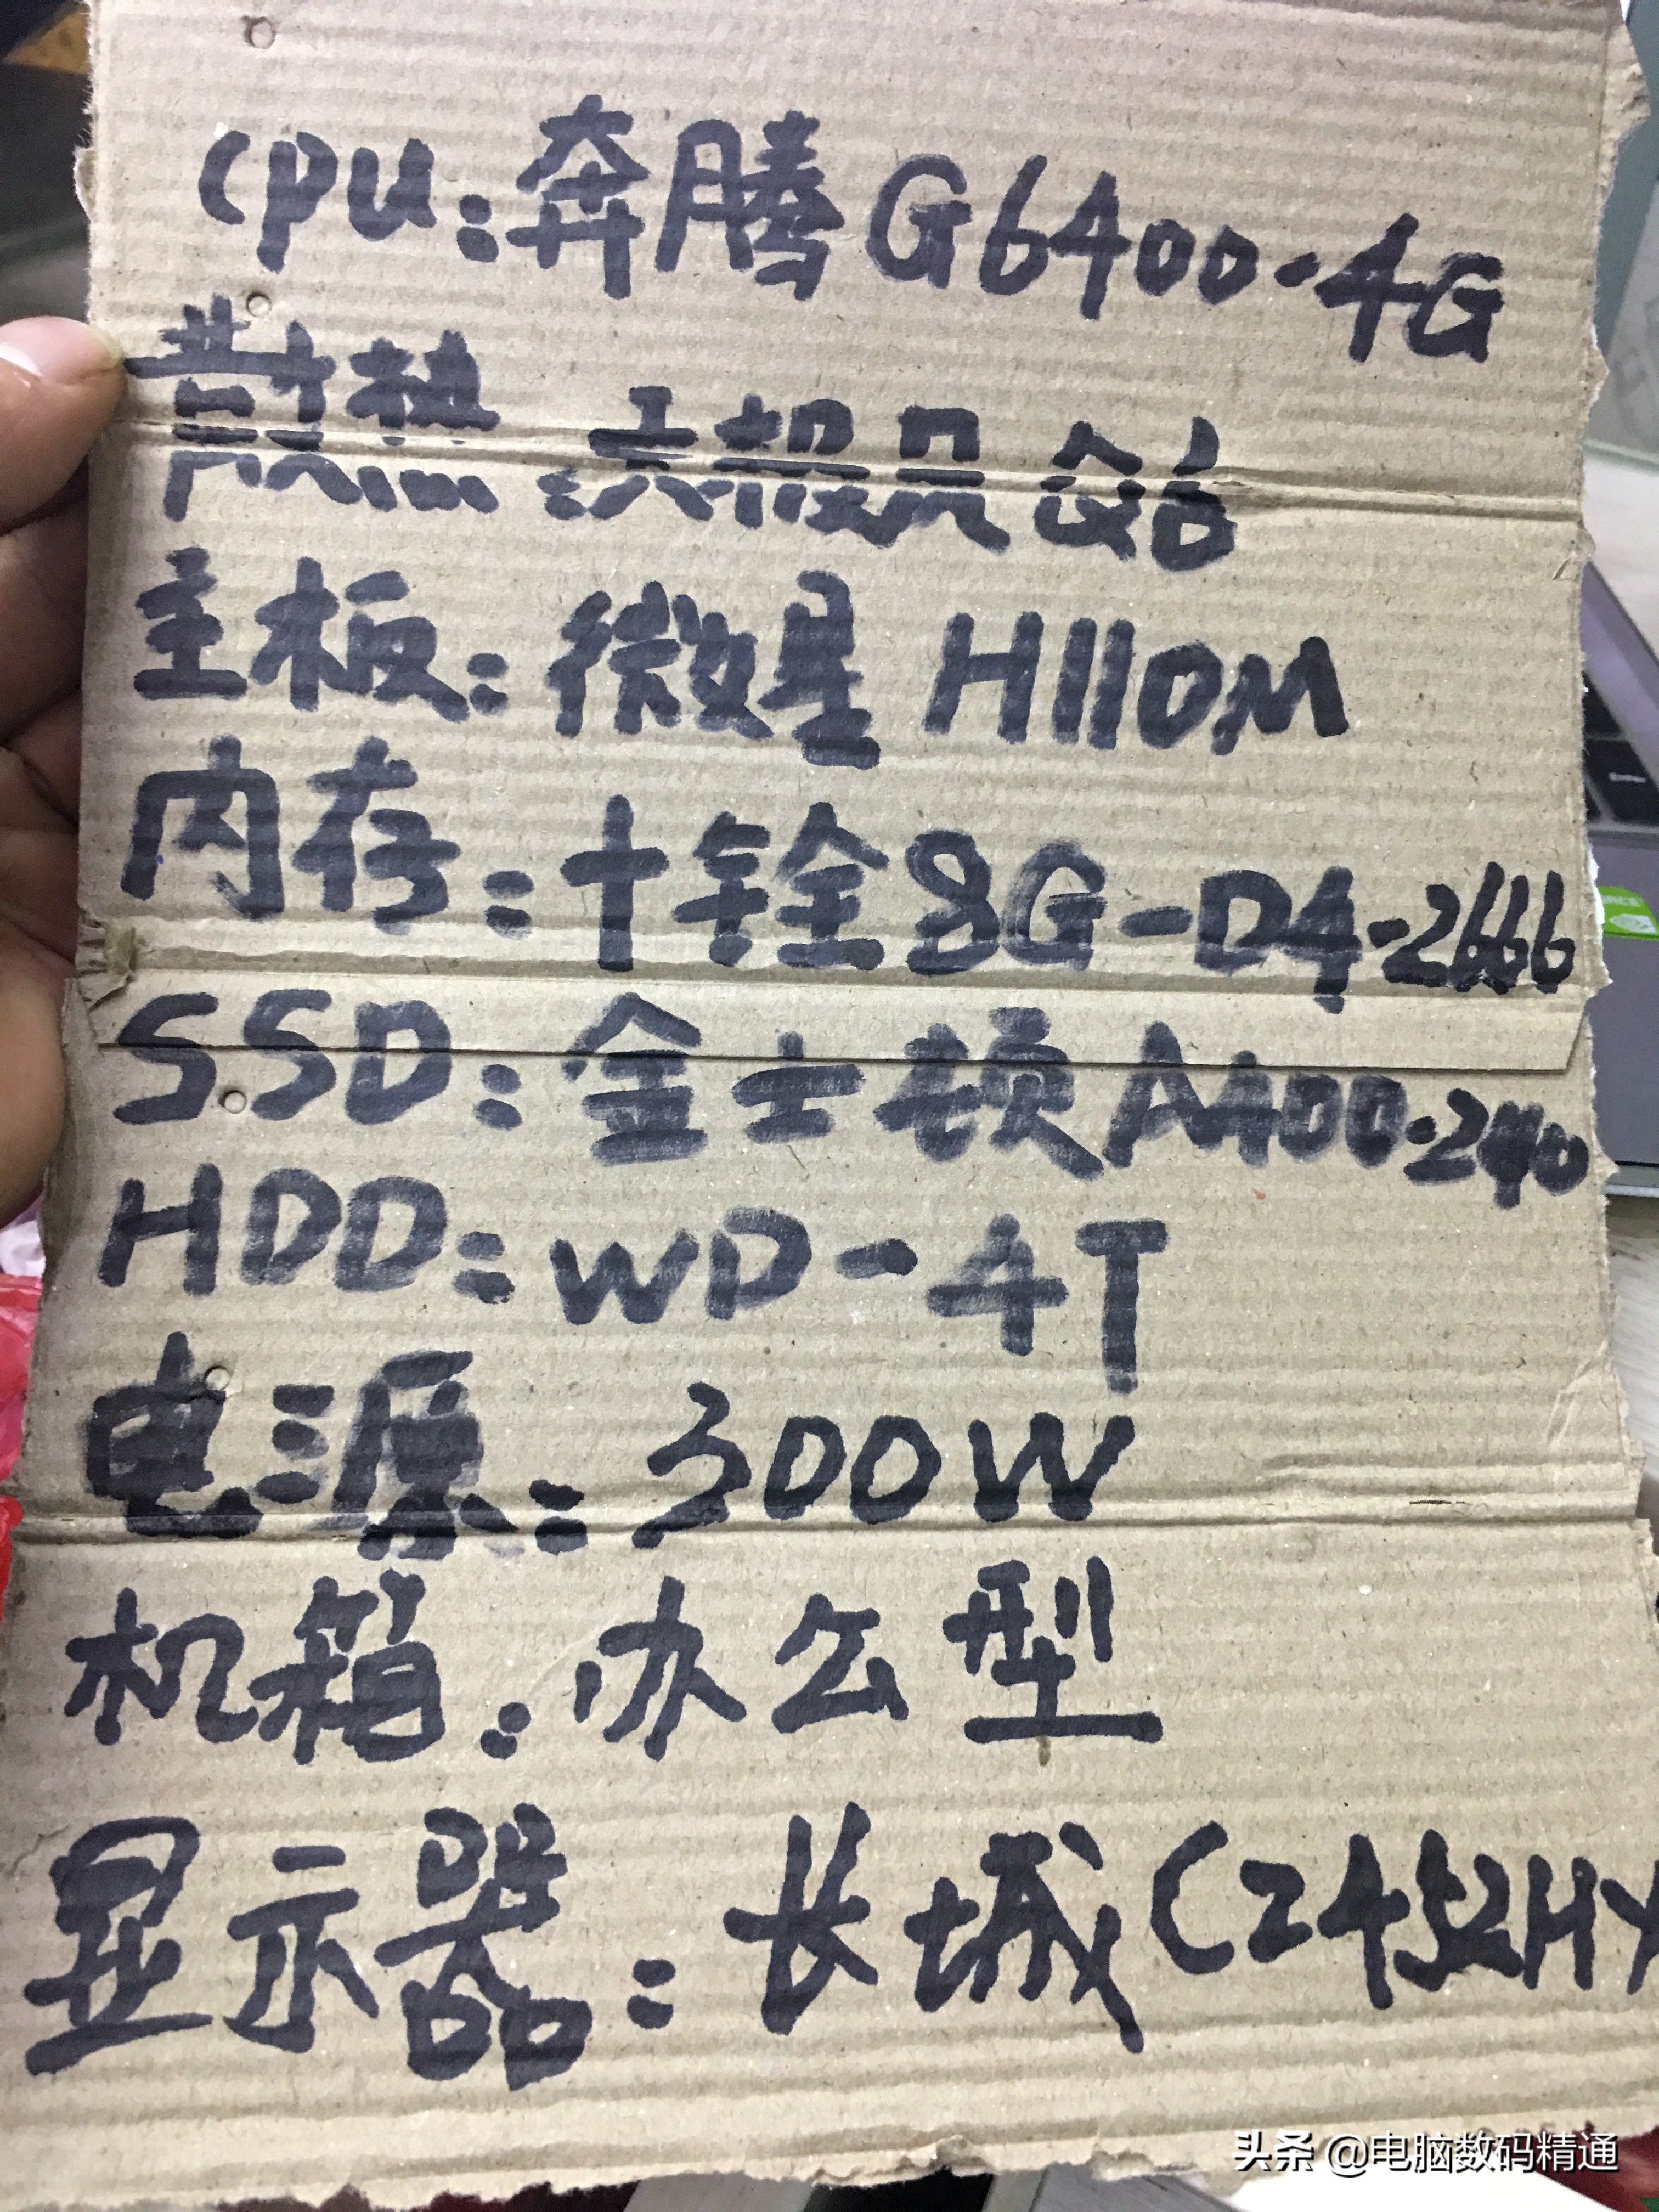 cpu:奔腾G6400·4G
散热:天极风众台
主板:微星H110M
内存:十铨8G-D4·2666
SSD:金士顿A400·240
HDD:WD-4T
电源:300W
机箱:办公型
显示器:长城(2452HY
头条 @电脑数码精通